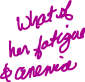 What of
her fatigue
& anemia